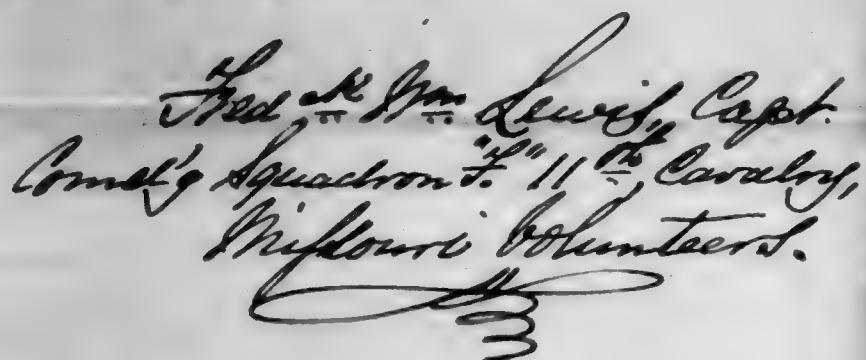 Fred.ck Wm. Lewis, Capt.
Comd'g Squadron "F." 11th Cavalry,
Missouri Volunteers.